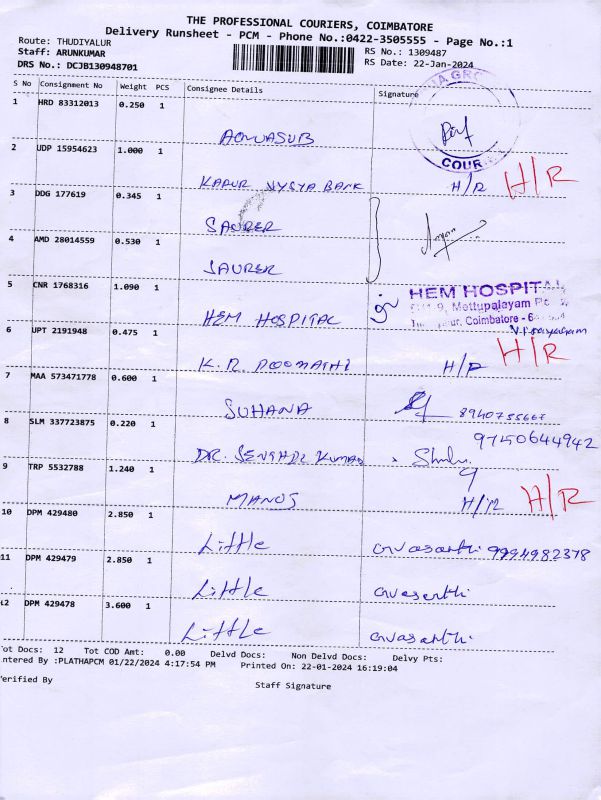 THE PROFESSIONAL COURIERS, COIMBATORE
Delivery Runsheet - PCM - Phone No.:0422-3505555 - Page No.:1
Route: THUDIYALUR
RS No.: 1309487
Staff: ARUNKUMAR
RS Date: 22-Jan-2024
DRS No.: DCJB130948701
S No Consignment No Weight PCS Consignee Details Signature
1 HRD 83312013 0.250 1
AQUASUB
COUR
2 UDP 15954623 1.000 1
KARUR VYSYA BANK H/R H/R
3 DDG 177619 0.345 1
SAURER
4 AMD 28014559 0.530 1
SAURER
5 CNR 1768316 1.090 1
HEM HOSPITAL
HEM HOSPITAL
Mettupalayam
Coimbatore - 6
6 UPT 2191948 0.475 1
K.R. POOMATHI H/R H/R
7 MAA 573471778 0.600 1
SUHANA 8940755667
8 SLM 337723875 0.220 1
9750644942
DR. SENTHIL KUMAR
9 TRP 5532788 1.240 1
MANOJ H/R H/R
10 DPM 429480 2.850 1
Little 9994982378
11 DPM 429479 2.850 1
Little
12 DPM 429478 3.600 1
Little
ot Docs: 12 Tot COD Amt: 0.00 Delvd Docs: Non Delvd Docs: Delvy Pts:
ntered By :PLATHAPCM 01/22/2024 4:17:54 PM Printed On: 22-01-2024 16:19:04
erified By
Staff Signature